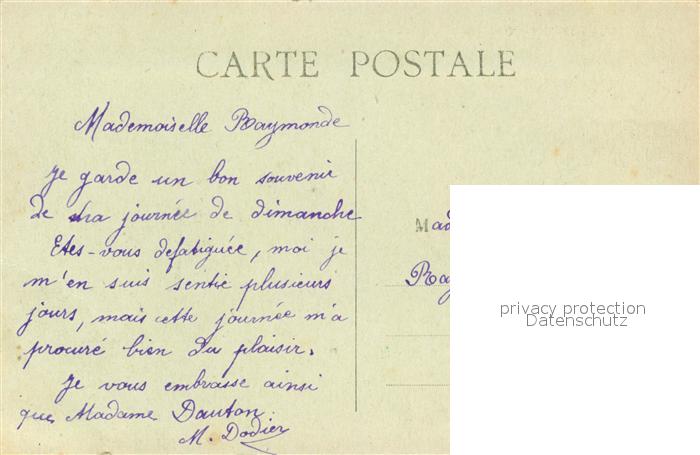 CARTE POSTALE
Mademoiselle Raymonde
Je garde un bon souvenir
de la journée de dimanche
Etes-vous défatiguée, moi je
m'en suis sentie plusieurs
jours, mais cette journée m'a
procuré bien du plaisir.
Je vous embrasse ainsi
que Madame Dauton.
M. Dodier
Mad
Ray
privacy protection
Datenschutz